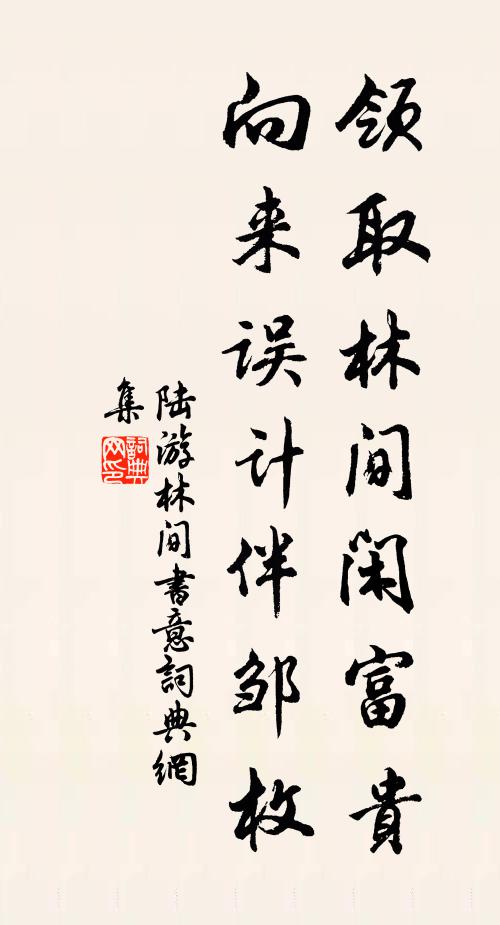 领取林间闲富贵
向来误计伴邹枚
陆游林间书意詞典網
集
詞典网印